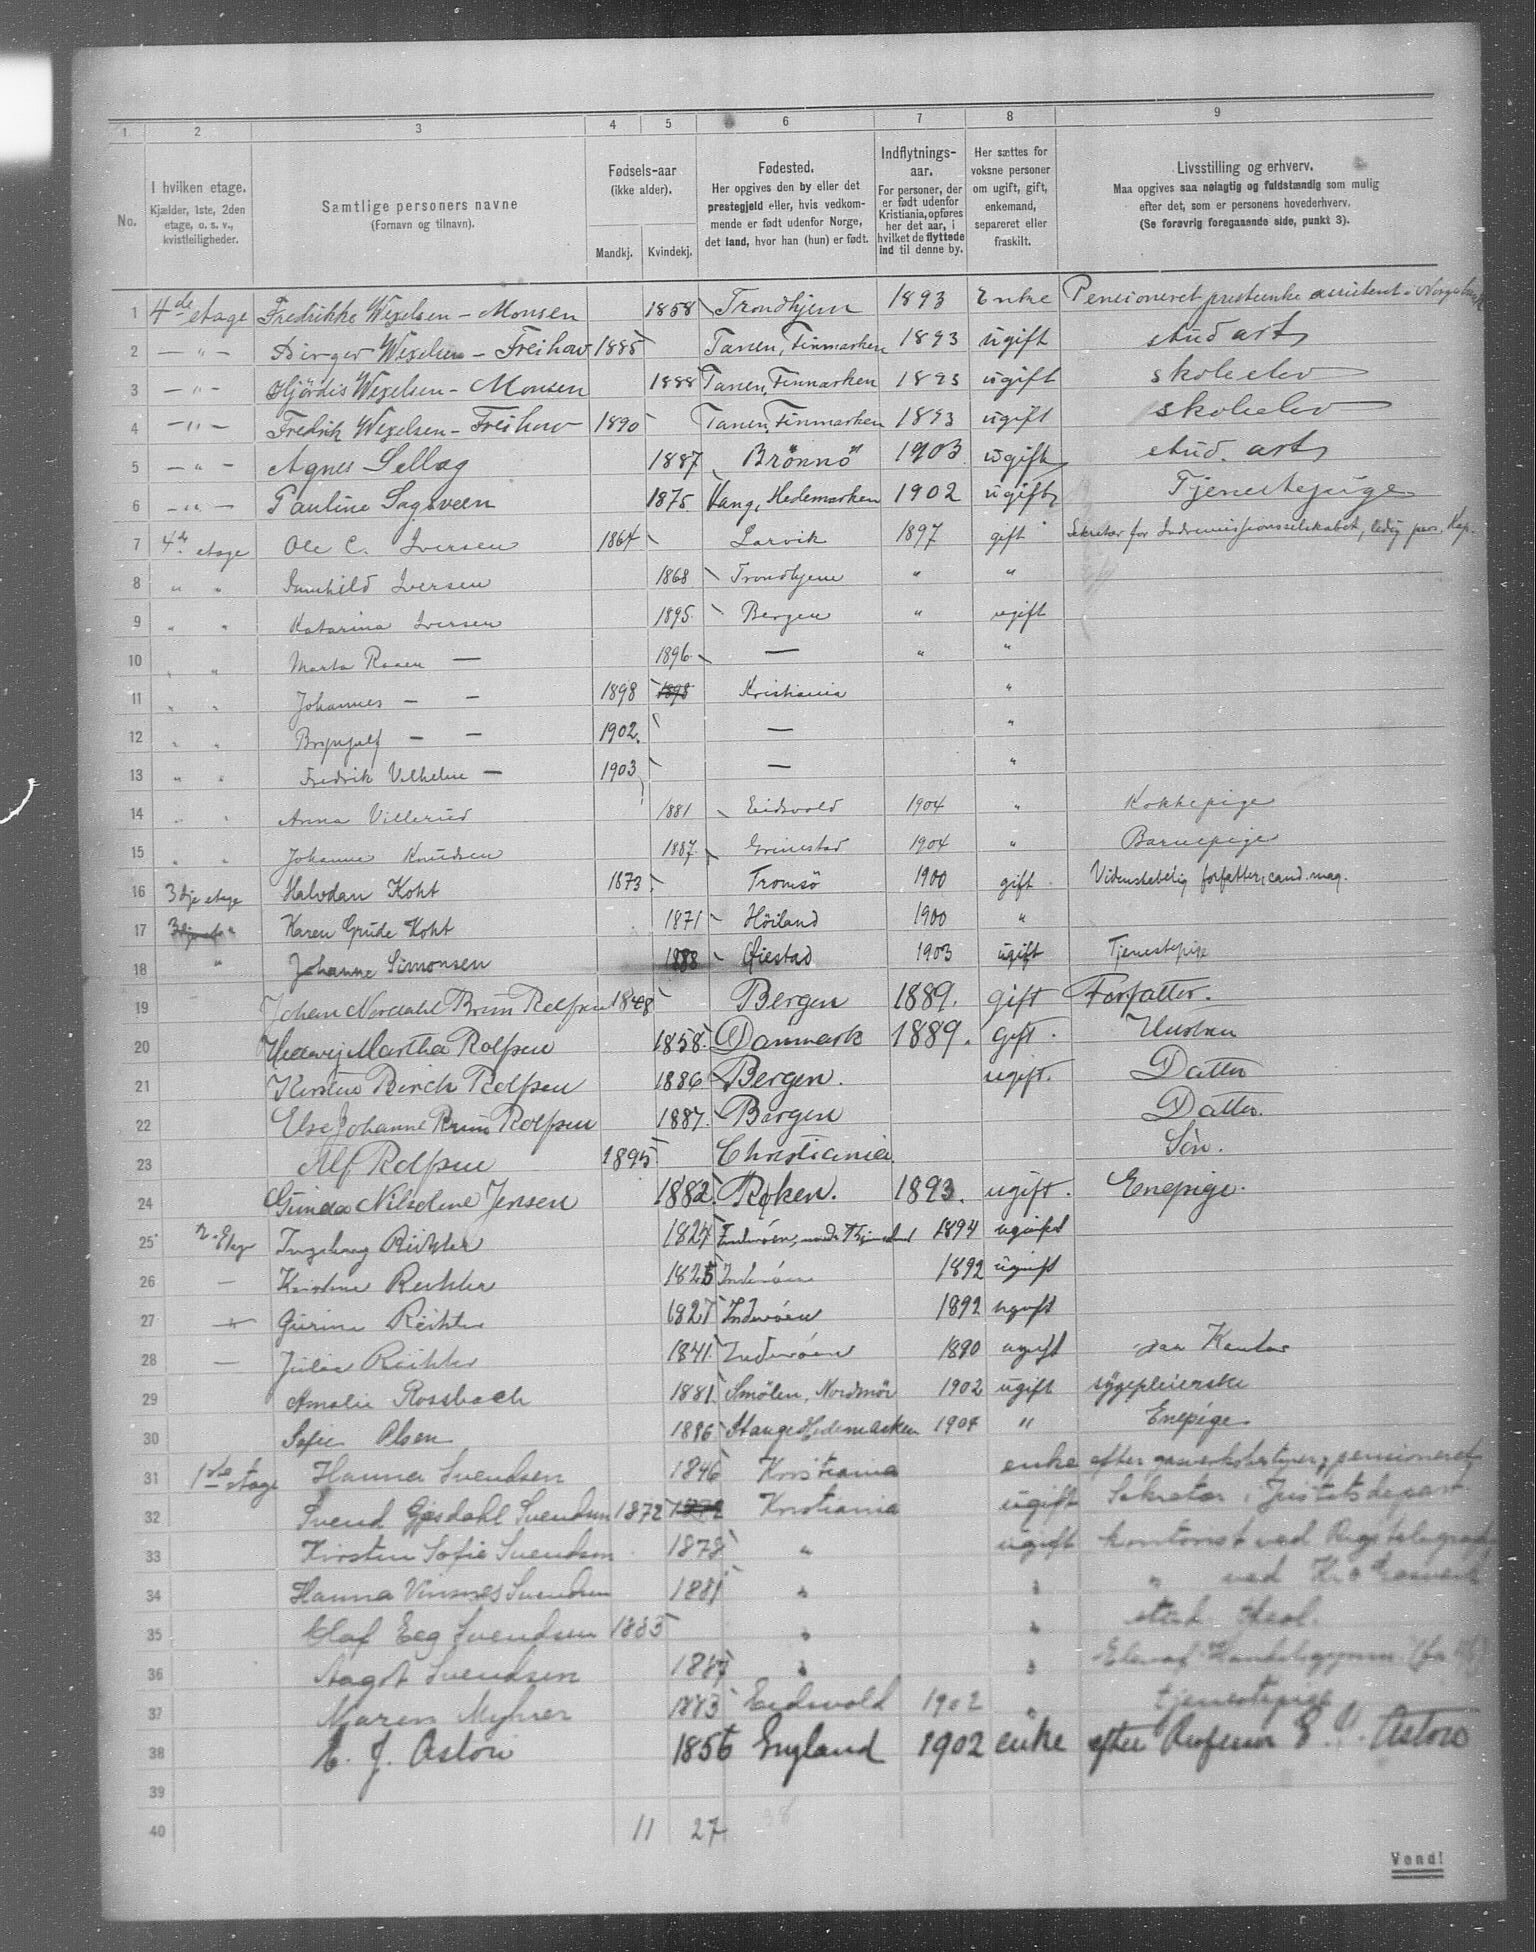 1 2 3 4 5 6 7 8 9
No. | I hvilken etage. Kjælder, 1ste, 2den etage, o. s. v., kvistleiligheder. | Samtlige personers navne (Fornavn og tilnavn). | Fødsels-aar (ikke alder). Mandkj. Kvindekj. | Fødested. Her opgives den by eller det prestegjeld eller, hvis vedkommende er født udenfor Norge, det land, hvor han (hun) er født. | Indflytnings-aar. For personer, der er født udenfor Kristiania, opføres her det aar, i hvilket de flyttede ind til denne by. | Her sættes for voksne personer om ugift, gift, enkemand, separeret eller fraskilt. | Livsstilling og erhverv. Maa opgives saa nøiagtig og fuldstændig som mulig efter det, som er personens hovederhverv. (Se forøvrig foregaaende side, punkt 3).
1 4de etage Fredrikke Wexelsen - Monsen 1858 Trondhjem 1893 Enke Pensioneret presteenke assistent i
2 — " — Birger Wexelsen - Freihow 1885 Tanen, Finmarken 1893 ugift stud art
3 — " — Hjördis Wexelsen - Monsen 1888 Tanen, Finmarken 1893 ugift skoleelev
4 — " — Fredrik Wexelsen - Freihow 1890 Tanen, Finmarken 1893 ugift skoleelev
5 — " — Agnes Sellæg 1887 Brönnö 1903 ugift stud. art
6 — " — Pauline Sagsveen 1875 Vang, Hedemarken 1902 ugift Tjenestepige
7 4de etage Ole C. Iversen 1864 Larvik 1897 gift Sekretær for Indremissionsselskabet, ledig pers. Kap.
8 " " Iversen 1868 Trondhjem " "
9 " " Katarina Iversen 1895 Bergen " ugift
10 " " Marta Raaen — 1896 — " "
11 " " Johannes — — 1898 1898 Kristiania "
12 " " Brynjulf — — 1902 — "
13 " " Fredrik Vilhelm — 1903 — "
14 " " Anna Villerud 1881 Eidsvold 1904 " Kokkepige
15 " " Johanne Knudsen 1887 Grimstad 1904 " Barnepige
16 3dje etage Halvdan Koht 1873 Tromsö 1900 gift Videnskabelig forfatter, cand. mag.
17 " Karen Grude Koht 1871 Höiland 1900 "
18 " Johanne Simonsen 1888 Øiestad 1903 ugift Tjenestepige
19 Johan Nordahl Brun Rolfsen 1848 Bergen 1889. gift Forfatter.
20 Hedevig Martha Rolfsen 1858 Danmark 1889. gift. Hustru
21 Kirstine Birch Rolfsen 1886 Bergen. ugift. Datter
22 Else Johanne Brun Rolfsen 1887 Bergen Datter.
23 Alf Rolfsen 1895 Christiania Sön.
24 Gunda Nilsdine Jensen 1882 Røken. 1893. ugift. Enepige.
25 2. Etage Ingeborg Richter 1827 Inderöen, 1894 ugift
26 — Richter 1825 Inderöen 1892 ugift
27 — " Gurine Richter 1827 Inderöen 1892 ugift
28 — Julie Richter 1841 Inderöen 1890 ugift paa Kontor
29 Amalie Rossbach 1881 Smölen, Nordmör 1902 ugift sygepleierske
30 Sofie Olsen 1886 Stange Hedemarken 1904 " Enepige
31 1ste etage Hanna Svendsen 1846 Kristiania enke efter gasverksbestyrer, pensioneret
32 Svend Gjesdahl Svendsen 1872 1872 Kristiania ugift Sekretær i Justitsdepart.
33 Kirsten Sofie Svendsen 1878 " ugift kontorist ved Rigstelegrafen
34 Hanna Vinsnes Svendsen 1881 " " " ved Kr.a Gasverk
35 Olaf Eeg Svendsen 1883 " " stud. theol.
36 Aagot Svendsen 1887 " " Elev af Handelsgymn.
37 Maren Myhrer 1883 Eidsvold 1902 " tjenestepige
38 E. J. Aston 1856 England 1902 enke efter Professor E. Aston
39
40 11 27
Vend!